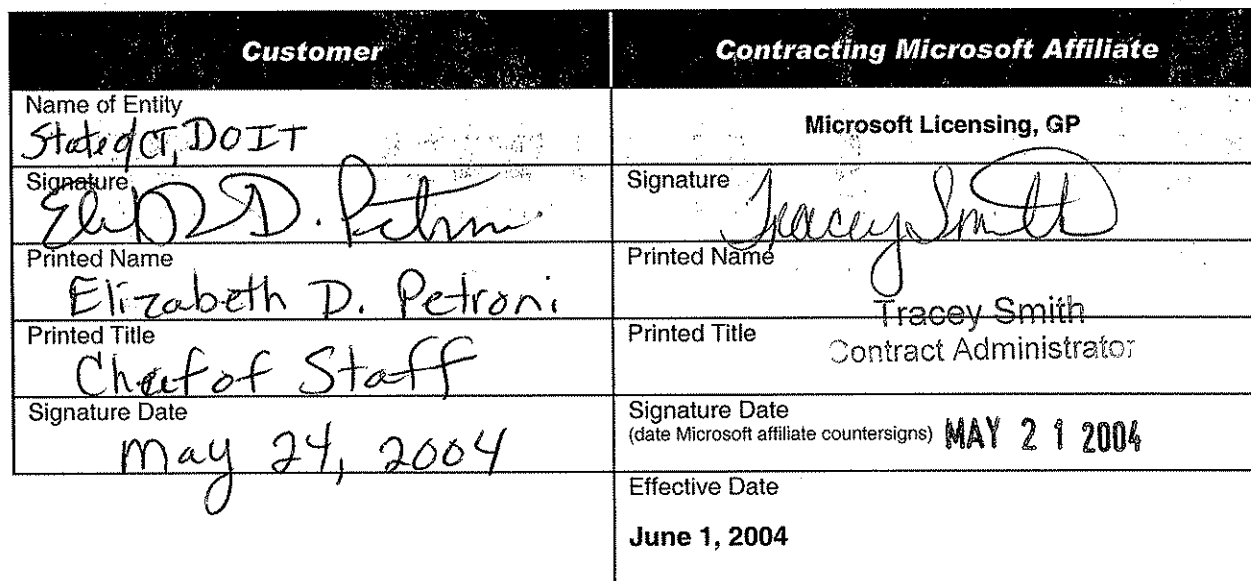 Customer
Contracting Microsoft Affiliate
Name of Entity
State of CT, DOIT
Microsoft Licensing, GP
Signature
Signature
Tracey Smith
Printed Name
Elizabeth D. Petroni
Printed Name
Tracey Smith
Printed Title
Chief of Staff
Printed Title
Contract Administrator
Signature Date
May 24, 2004
Signature Date
(date Microsoft affiliate countersigns) MAY 21 2004
Effective Date
June 1, 2004